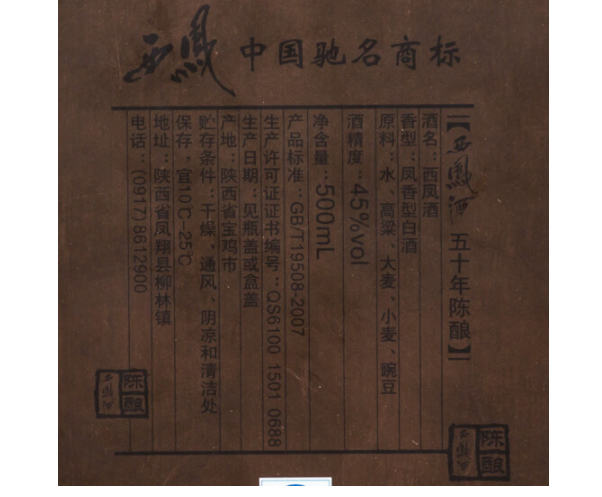 西鳳 中国驰名商标
【西鳳酒 五十年陈酿】
酒名：西凤酒
香型：凤香型白酒
原料：水、高粱、大麦、小麦、豌豆
酒精度：45%vol
净含量：500mL
产品标准：GB/T19508-2007
生产许可证证书编号：QS6100 1501 0688
生产日期：见瓶盖或盒盖
产地：陕西省宝鸡市
贮存条件：干燥、通风、阴凉和清洁处
保存，宜10℃-25℃
地址：陕西省凤翔县柳林镇
电话：(0917)8612900
陈酿
西鳳酒
陈酿
西鳳酒